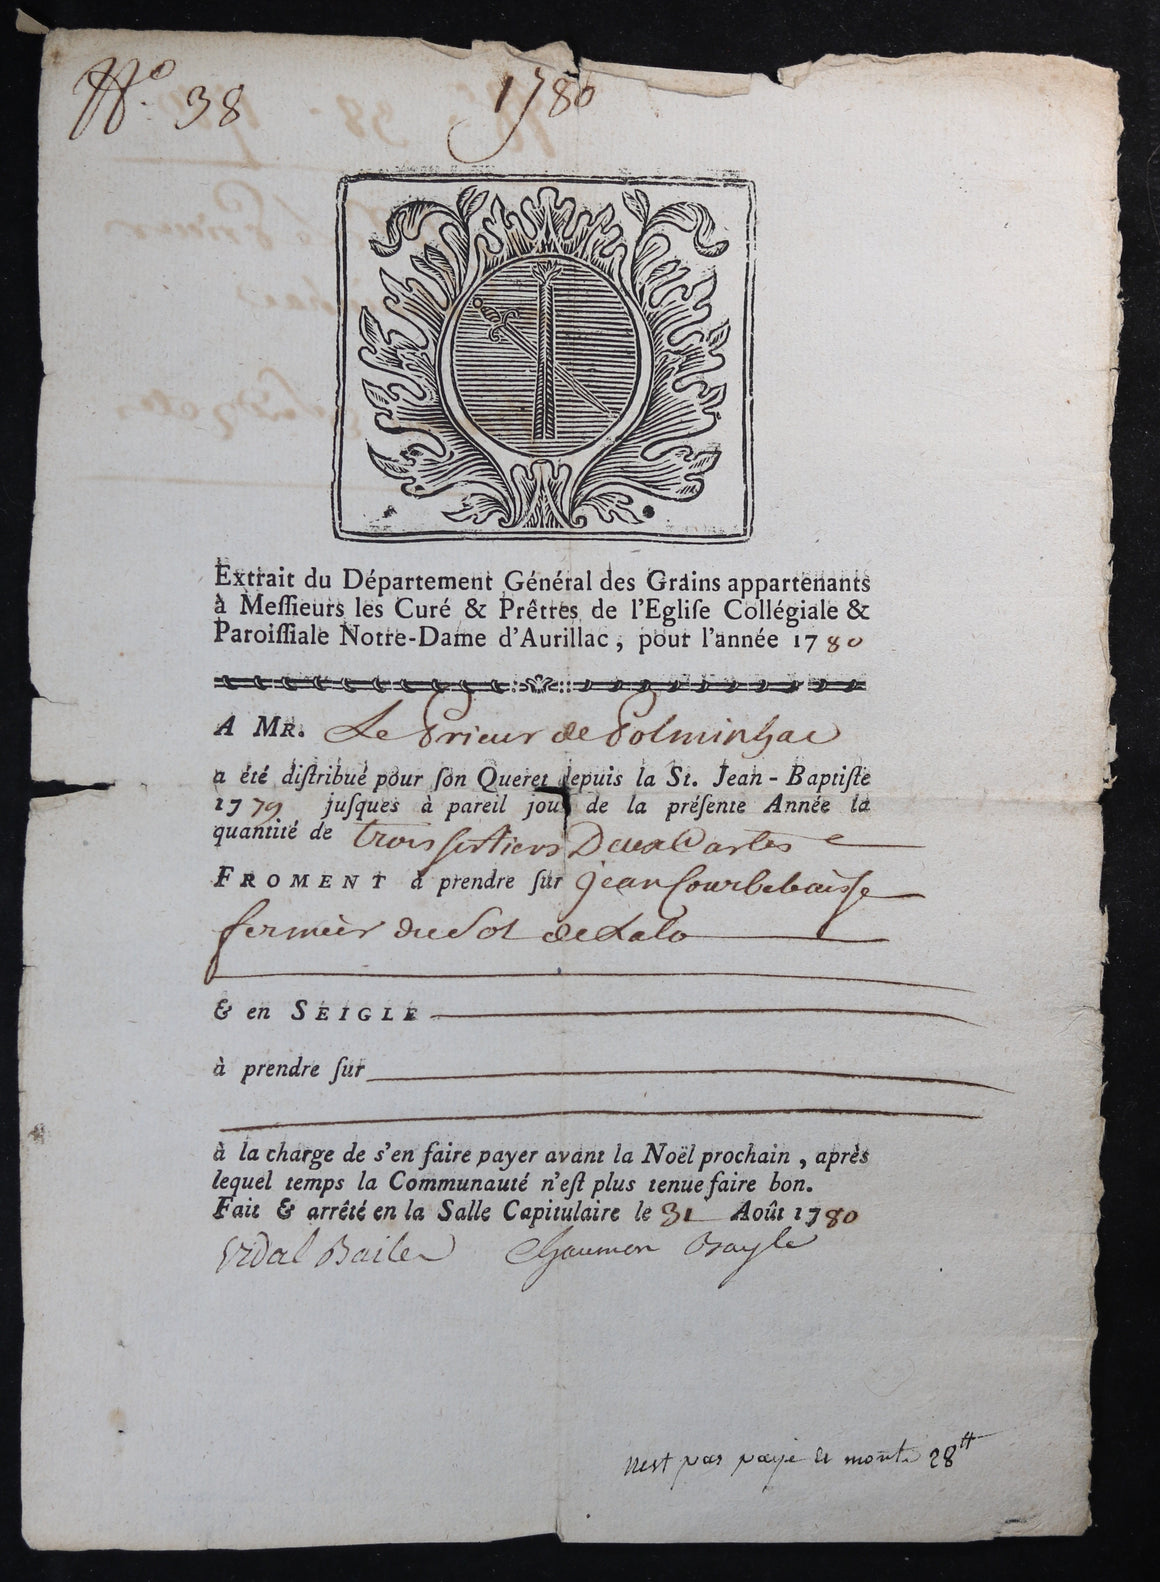 N.º 38 1780
Extrait du Département Général des Grains appartenants
à Meſſieurs les Curé & Prêtres de l'Egliſe Collégiale &
Paroiſſiale Notre-Dame d'Aurillac, pour l'année 1780
A MR. Le Prieur de Polminhac
a été diſtribué pour ſon Queret depuis la St. Jean-Baptiſte
1779 juſques à pareil jour de la préſente Année la
quantité de trois septiers Deux Cartes
FROMENT à prendre ſur jean Courbebaisse
fermier du Sol de Lalo
& en SEIGLE
à prendre ſur
à la charge de s'en faire payer avant la Noël prochain, après
lequel temps la Communauté n'eſt plus tenue faire bon.
Fait & arrêté en la Salle Capitulaire le 31 Août 1780
Vidal Baile Chaumon Bayle
nest pas payé et monte 28tt